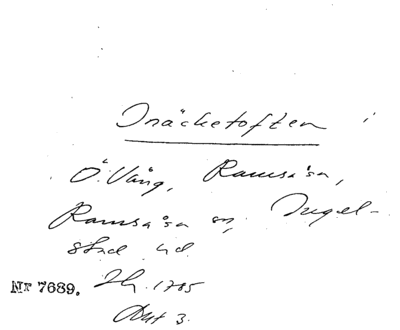 Snäcketoften i
Ö. Vång, Ramsåsa,
Ramsåsa sn, Ingel-
stad hd.
Nr 7689. Sk. 1785
Akt 3.